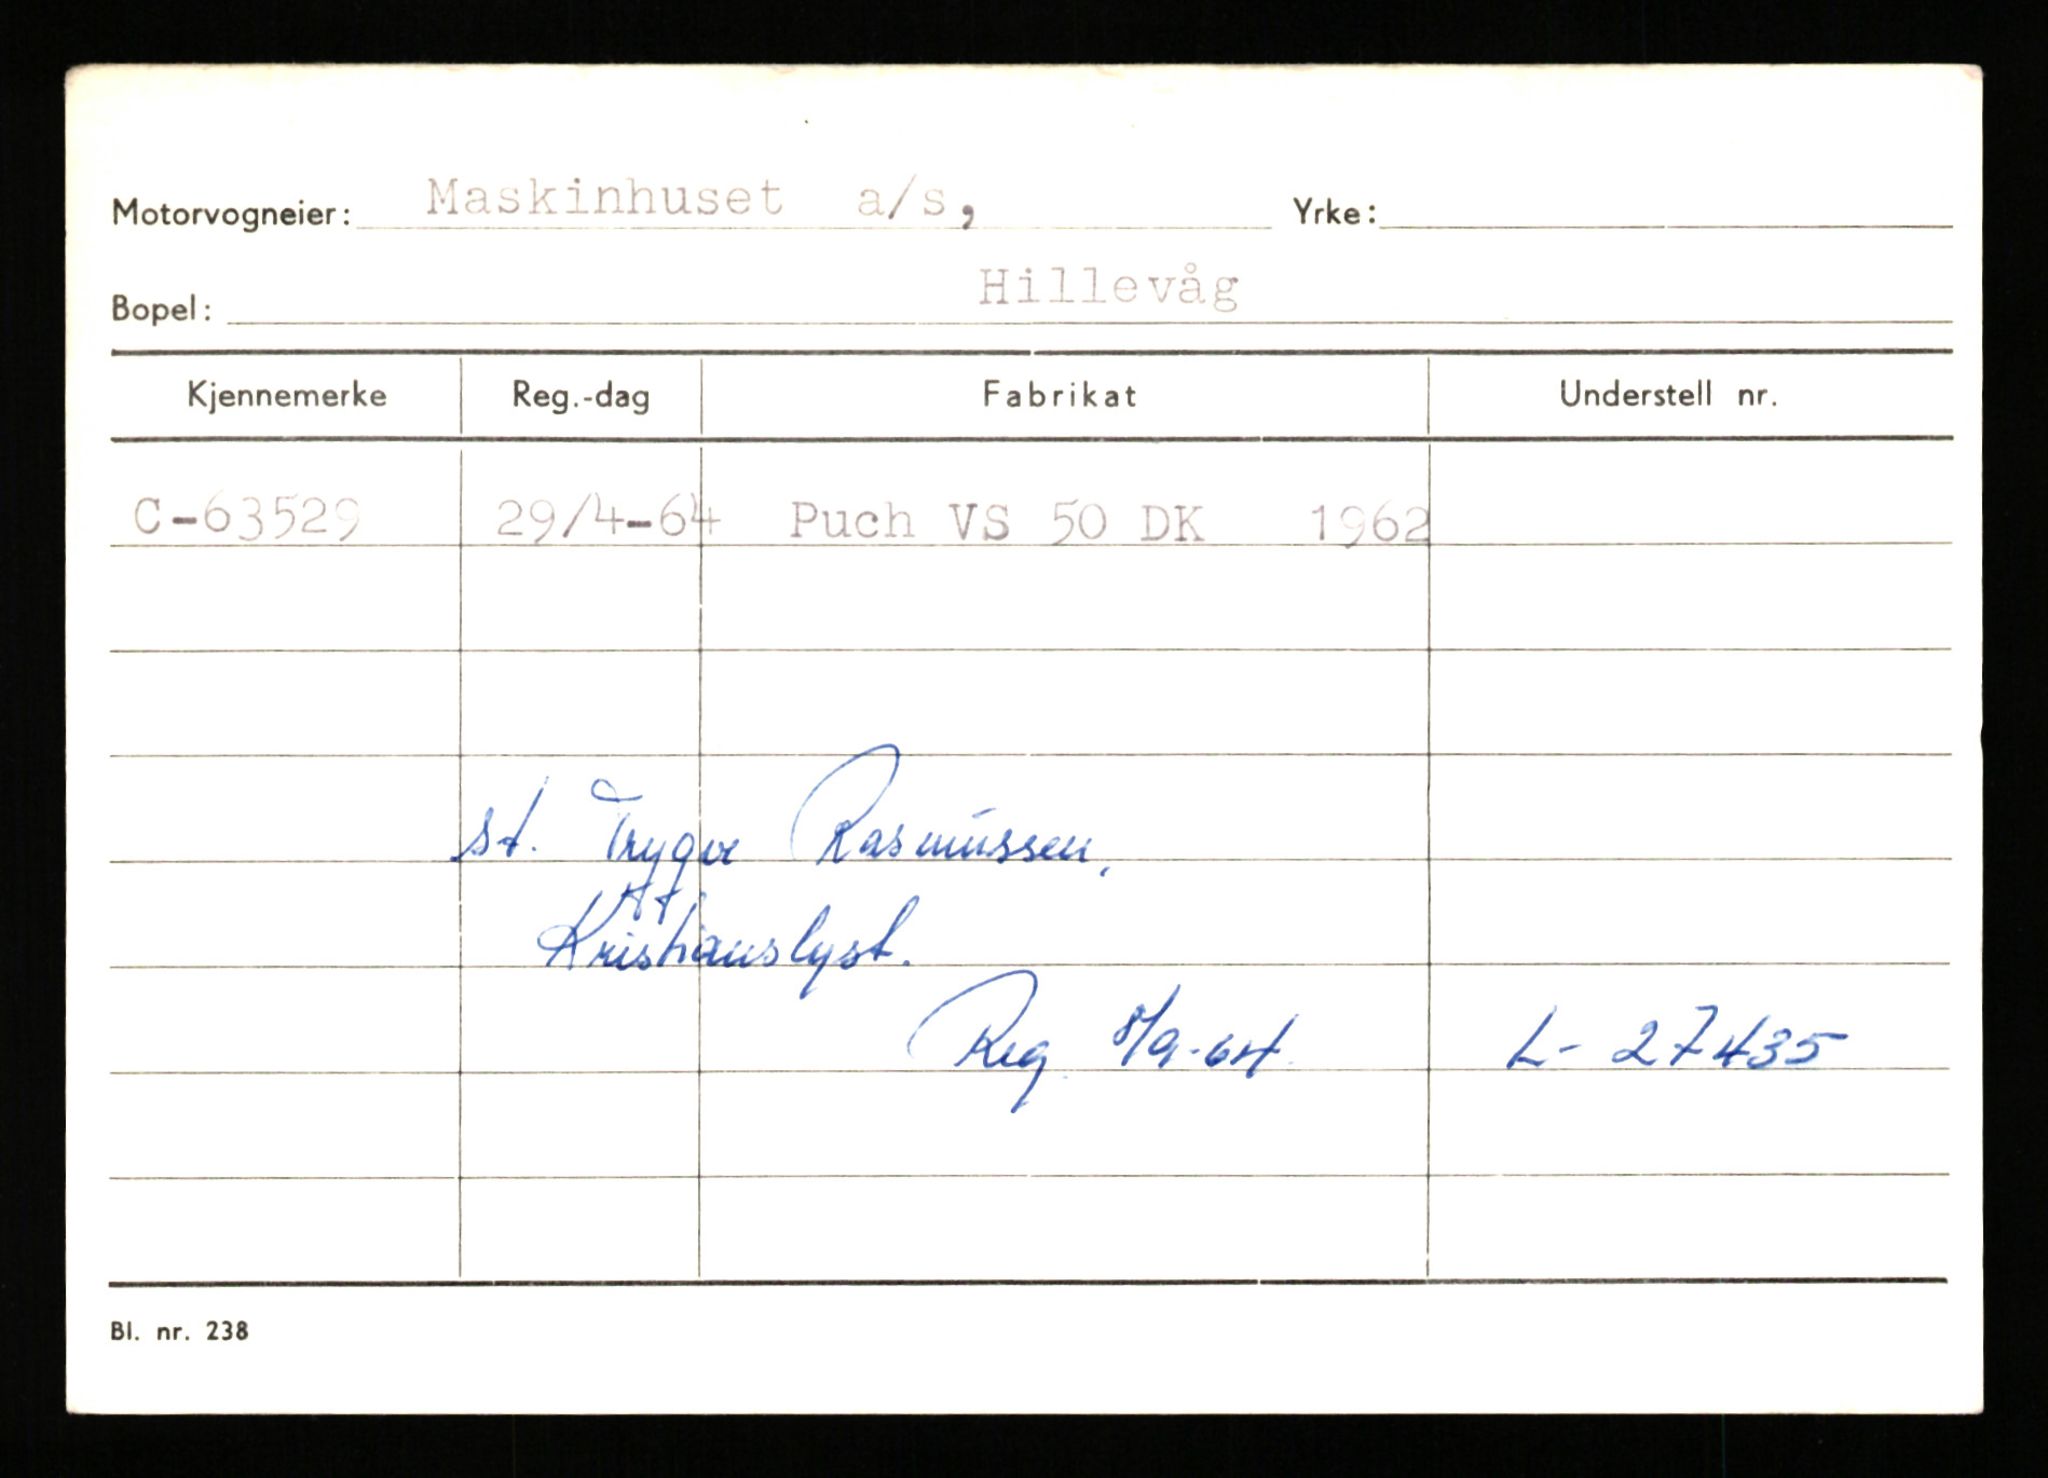 Motorvogneier: Maskinhuset a/s, Yrke:
Bopel: Hillevåg
Kjennemerke Reg.-dag Fabrikat Understell nr.
C-63529 29/4-64 Puch VS 50 DK 1962
st. Trygve Rasmussen,
Kristianslyst.
Reg. 8/9-64. L- 27435
Bl. nr. 238